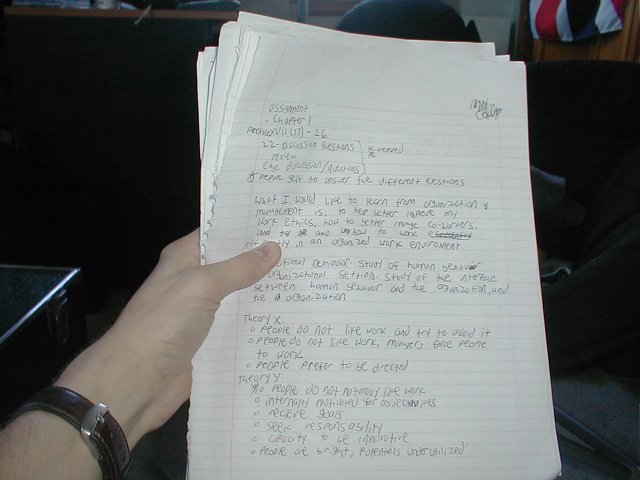 Assignment
- Chapter 1
Preface XVii (17) - 26
22 - Discussion questions
review
Case discussion/questions
prepare self to answer the different questions
What I would like to learn from organization &
management is. to help better improve my
work ethics, how to better manage co-workers,
and how to work
in an organized work enviroment
Behavior study of human behavior
organizational setting, study of the interface
between human behavior and the organization, and
the organization
Theory X:
o People do not like work and try to avoid it
o People do not like work, managers force people
to work
o People prefer to be directed
Theory Y:
o People do not naturally like work
o internally motivated for objectives
o recieve goals
o seek responsability
o capacity to be innovative
o People are bright, potentials under utilized